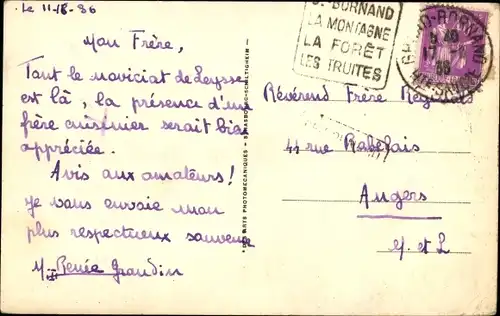 Le 11-8-36
Mon Frère,
Tout le noviciat de Leysse
est là, la présence d'un
frère cuisinier serait bien
appréciée.
Avis aux amateurs!
je vous envoie mon
plus respectueux souvenir
BORNAND
LA MONTAGNE
LA FORÊT
LES TRUITES
GRAND-BORNAND
Révérend Frère
44 rue Rabelais
Angers
M. et L
ARTS PHOTOMECANIQUES - STRASBOURG-SCHILTIGHEIM